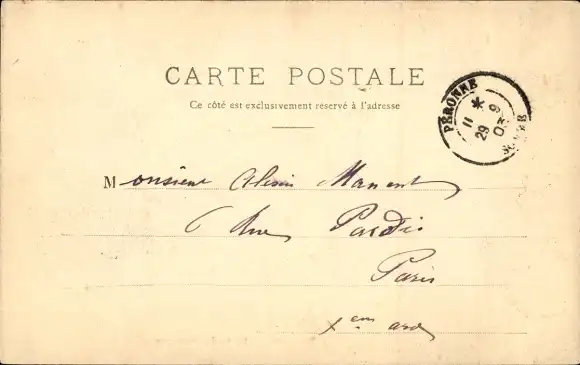 CARTE POSTALE
Ce côté est exclusivement réservé à l'adresse
PÉRONNE
11 * 9
29 03
SOMME
Monsieur Alexis Manent
6 Rue Paradis
Paris
Xem ard